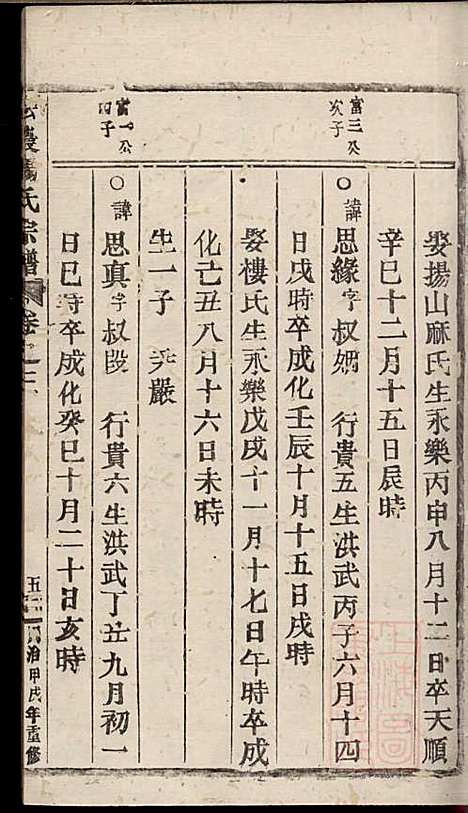 娶揚山麻氏生永樂丙申八月十二日卒天順
辛巳十二月十五日辰時
富三公
次子
○諱思緣字叔姻 行貴五生洪武丙子六月十四
日戌時卒成化壬辰十月十五日戌時
娶樓氏生永樂戊戌十一月十七日午時卒成
化己丑八月十六日未時
生一子 嚴
富一公
四子
○諱思真字叔段 行貴六生洪武丁丑九月初一
日巳時卒成化癸巳十月二十日亥時
氏宗譜 卷
五 治甲戌年重修